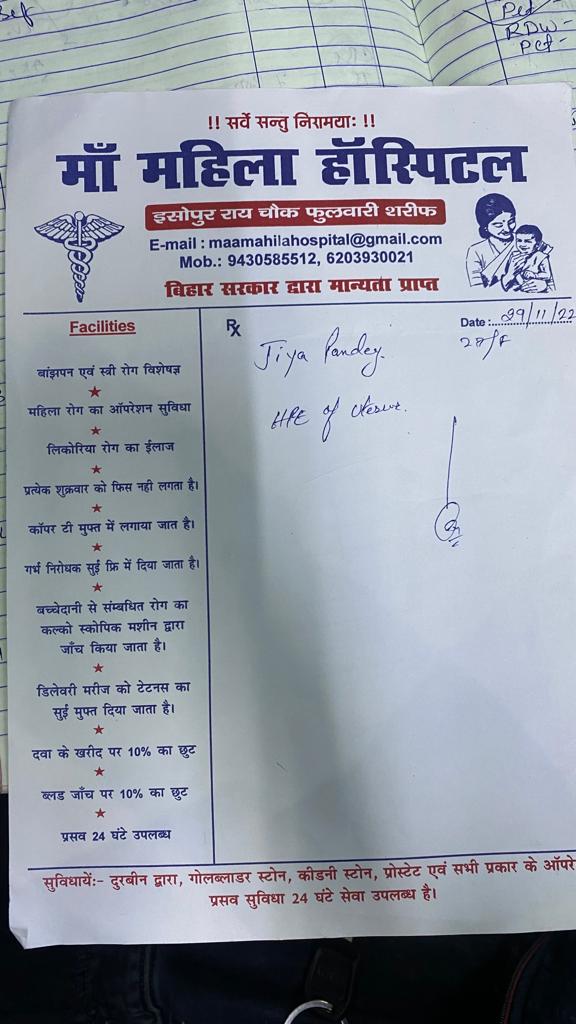 Ped
RDW-
Pcf-
!! सर्वे सन्तु निरामयाः !!
माँ महिला हॉस्पिटल
इसोपुर राय चौक फुलवारी शरीफ
E-mail : maamahilahospital@gmail.com
Mob.: 9430585512, 6203930021
बिहार सरकार द्वारा मान्यता प्राप्त
Facilities
बांझपन एवं स्त्री रोग विशेषज्ञ
महिला रोग का ऑपरेशन सुविधा
लिकोरिया रोग का ईलाज
प्रत्येक शुक्रवार को फिस नही लगता है।
कॉपर टी मुफ्त में लगाया जात है।
गर्भ निरोधक सुई फ्रि में दिया जाता है।
बच्चेदानी से संम्बधित रोग का
कल्को स्कोपिक मशीन द्वारा
जाँच किया जाता है।
डिलेवरी मरीज को टेटनस का
सुई मुफ्त दिया जाता है।
दवा के खरीद पर 10% का छुट
ब्लड जाँच पर 10% का छुट
प्रसव 24 घंटे उपलब्ध
Rx
Date :...29/11/22
28/F
Jiya Pandey.
HPE of Uterus.
सुविधायें:- दुरबीन द्वारा, गोलब्लाडर स्टोन, कीडनी स्टोन, प्रोस्टेट एवं सभी प्रकार के ऑपरे
प्रसव सुविधा 24 घंटे सेवा उपलब्ध है।